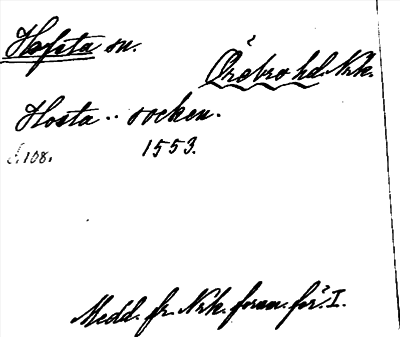 Hofsta sn.
Örebro hd. Nrk.
Hosta .. socken.
S. 108. 1553.
Medd. fr. Nrk. forn. för. I.